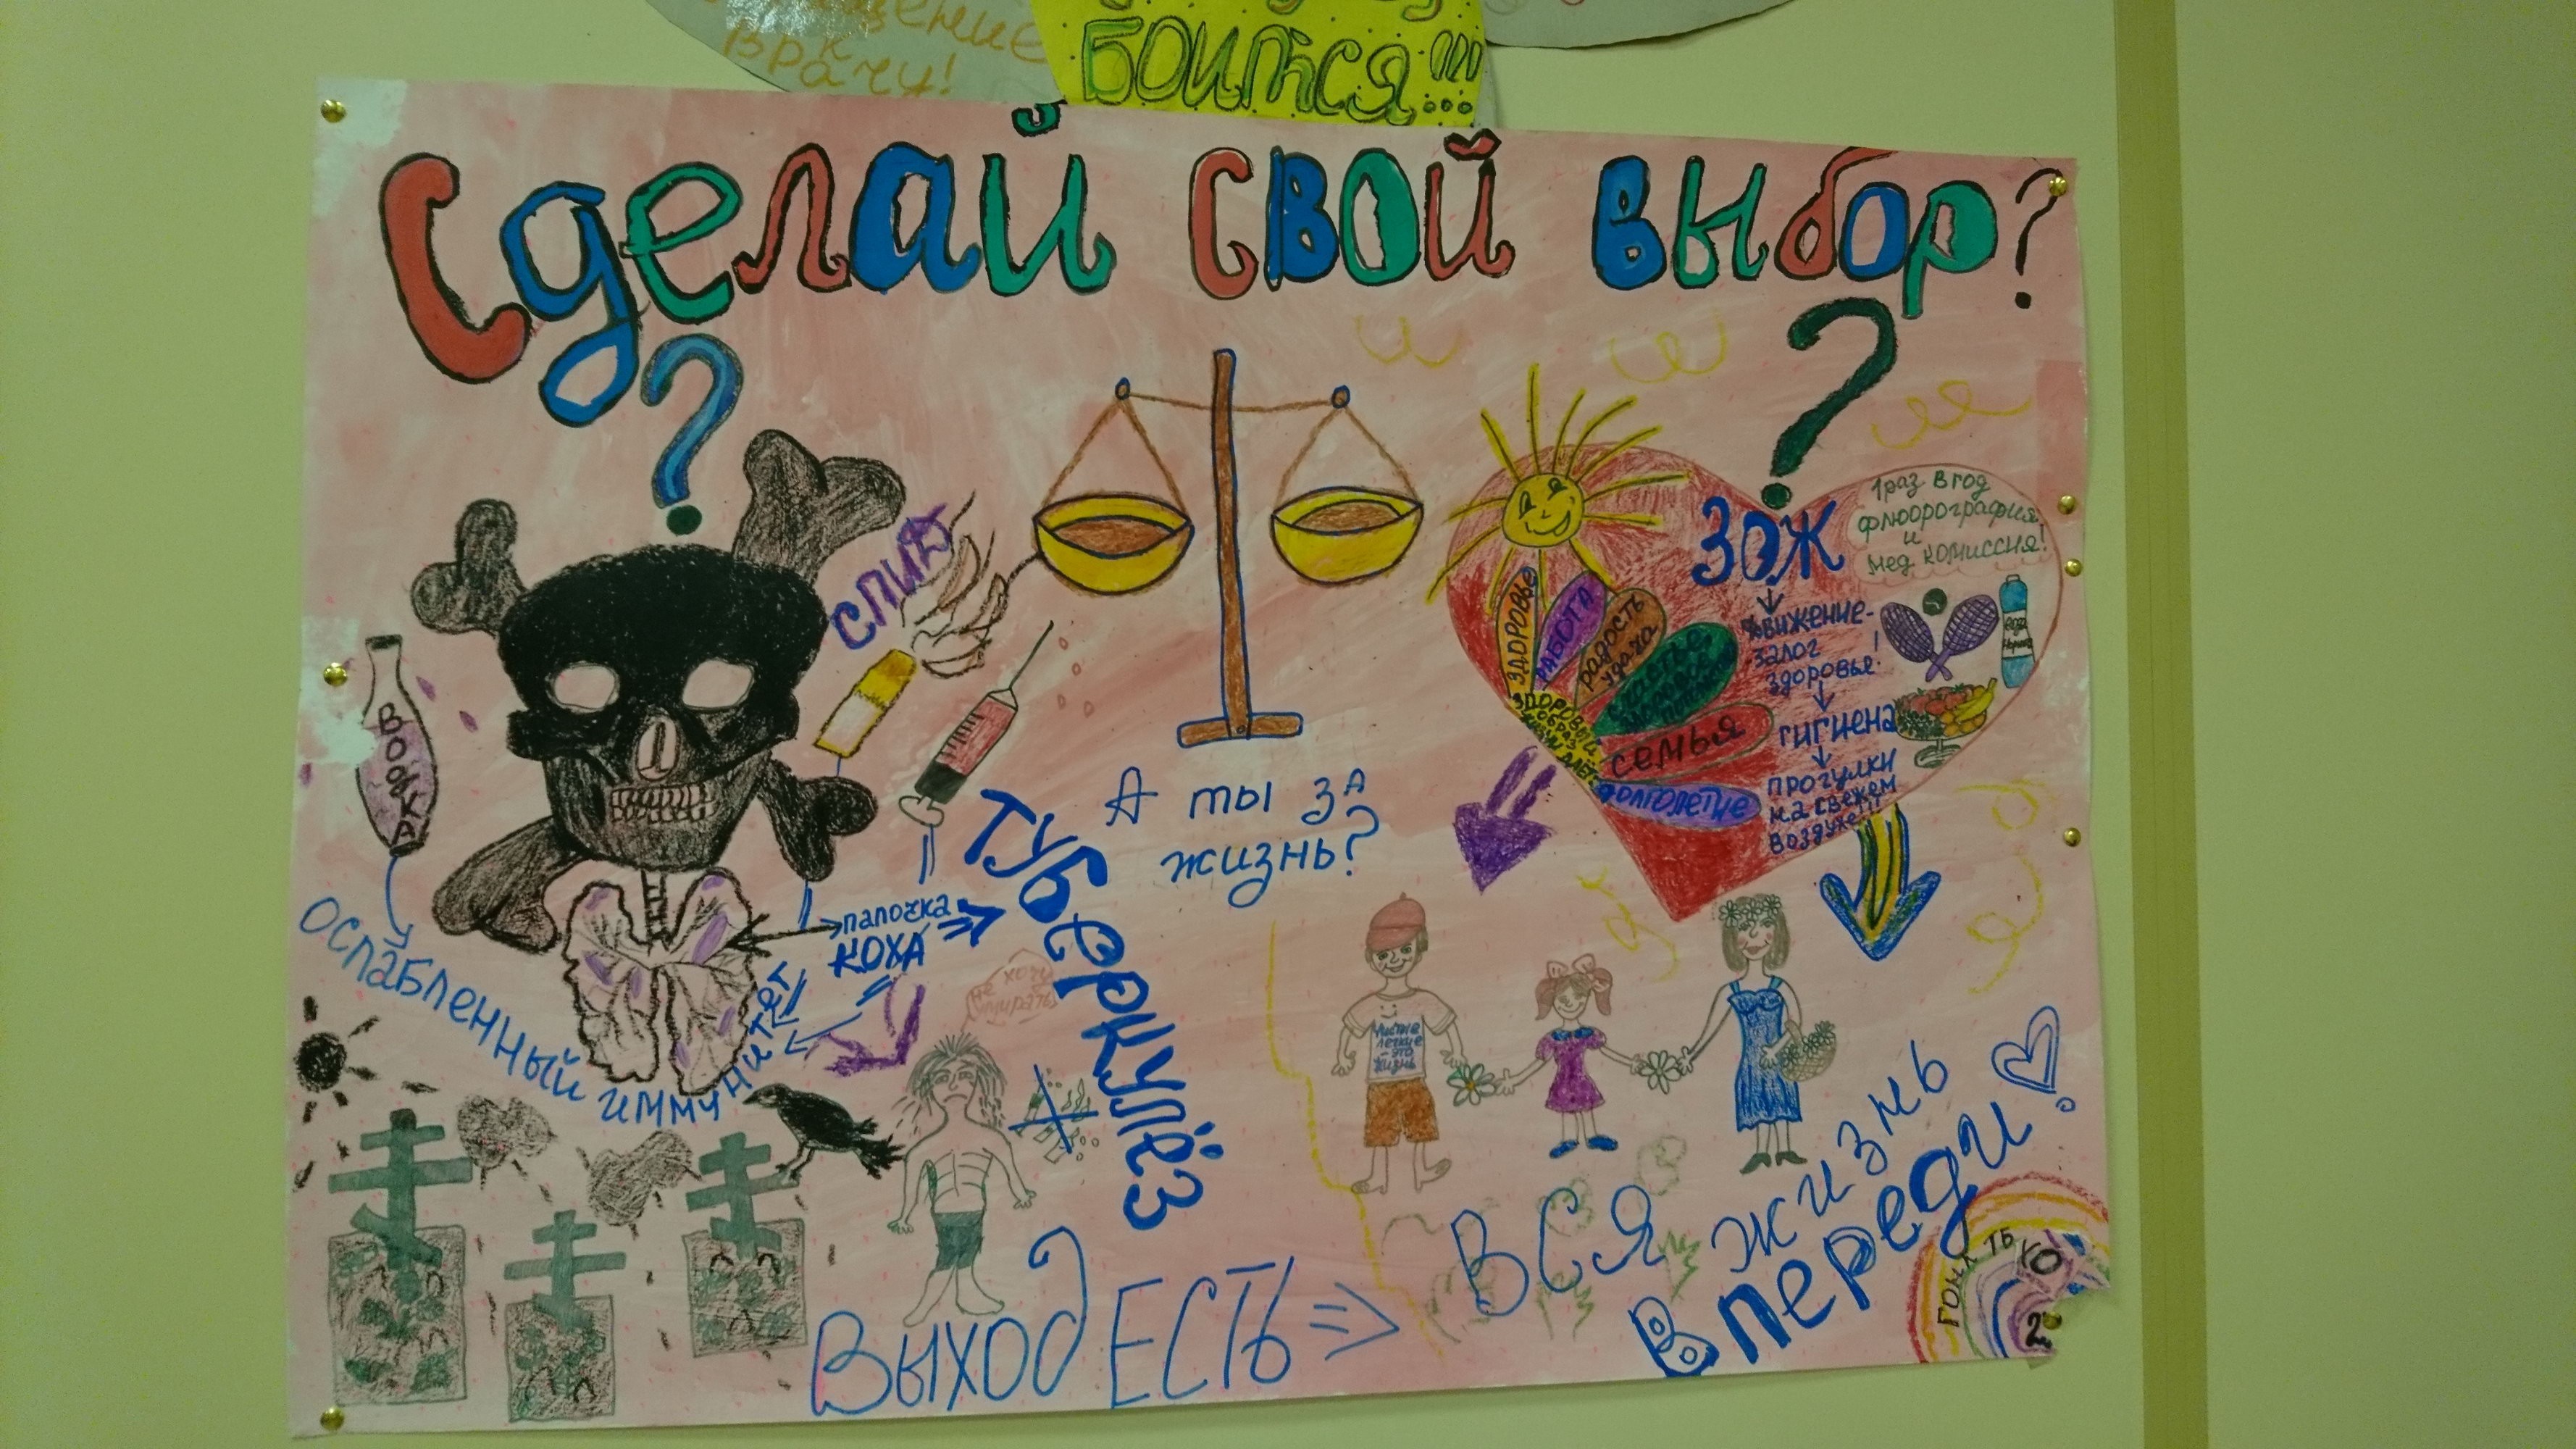 врачу!
БОИТСЯ!!!
Сделай свой выбор?
?
?
СПИД
водка
ЗОЖ
1 раз в год
флюорография
и
мед комиссия!
движение-
залог
здоровье!
гигиена
прогулки
на свежем
воздухе!!!
ЗДОРОВЬЕ
РАБОТА
радость
удача
семья
долголетие
А ты за
жизнь?
палочка
КОХА
Туберкулёз
ослабленный иммунитет
не хочу
умирать
Чистые
легкие
-это
жизнь
Выход ЕСТЬ =>
ВСЯ жизнь
Впереди!